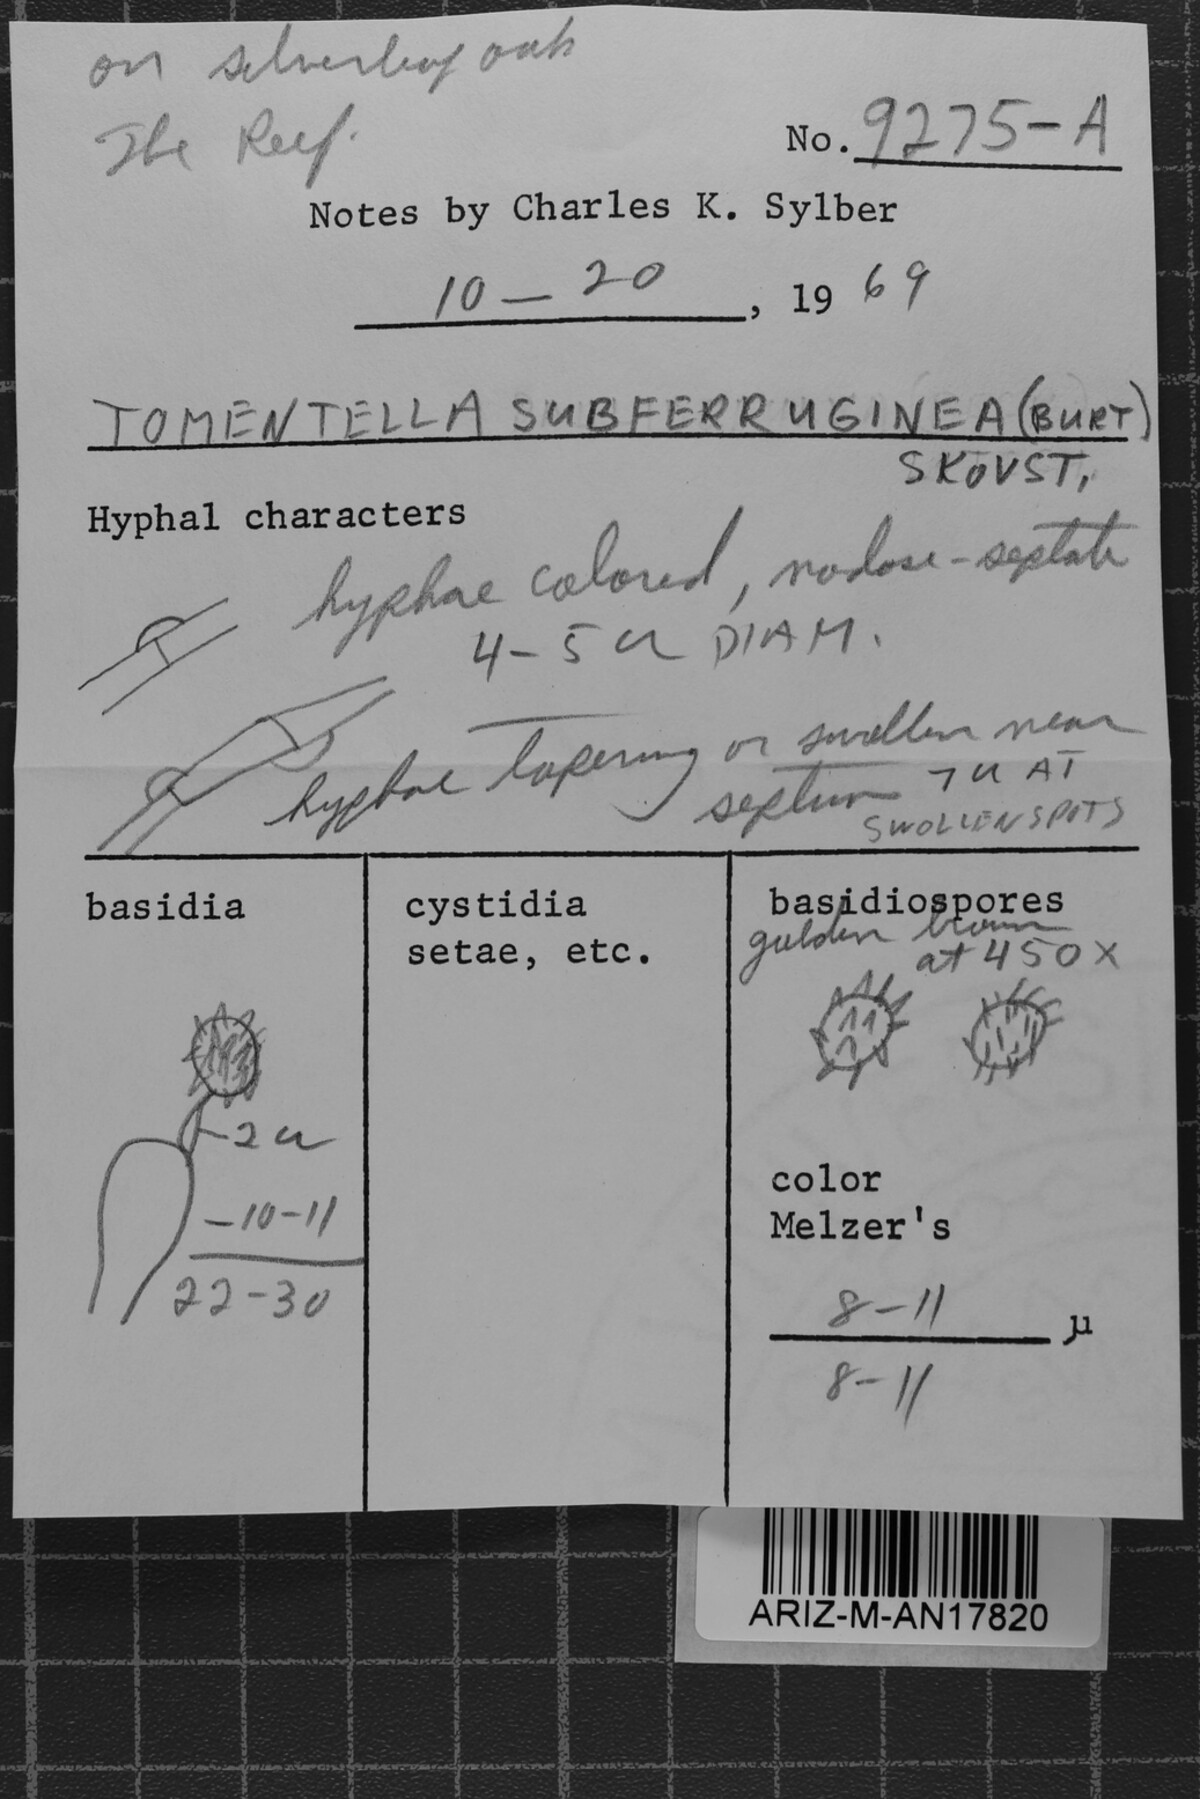 on silverleaf oak
The Reef.
No. 9275-A
Notes by Charles K. Sylber
10 — 20, 19 69
TOMENTELLA SUBFERRUGINEA (BURT)
SKOVST.
Hyphal characters
hyphae colored, nodose-septate
4-5 u DIAM.
hyphae tapering or swollen near
septum 7 u AT
SWOLLEN SPOTS
basidia
-2 u
-10-11
22-30
cystidia
setae, etc.
basidiospores
golden brown
at 450 X
color
Melzer's
8-11 µ
8-11
ARIZ-M-AN17820